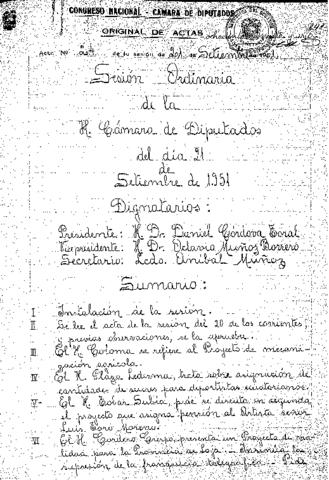 CONGRESO NACIONAL - CAMARA DE DIPUTADOS
ORIGINAL DE ACTAS
Acta No de la sesión de 21 de Setiembre 1951
Sesión Ordinaria
de la
H. Cámara de Diputados
del día 21
de
Setiembre de 1951
Dignatarios:
Presidente: H. Dr. Daniel Córdova Toral
Vicepresidente: H. Dr. Octavio Muñoz Borrero
Secretario: Lcdo. Anibal Muñoz
Sumario:
I Instalación de la sesión.
II Se lee el acta de la sesión del 20 de los corrientes,
y previas observaciones, se la aprueba.
III El H. Coloma se refiere al Proyecto de mecani-
zación agrícola.
IV El H. Plaza Ledesma, trata sobre asignación de
cantidades de sucres para deportistas ecuatorianos.
V - El H. Tobar Subía, pide se discuta en segunda,
el proyecto que asigna pensión al Artista señor
Luis Toro Moreno.
VI El H. Cordero Crespo, presenta un Proyecto de
para la Provincia de Loja. -
supresión de la franquicia telegráfica. -